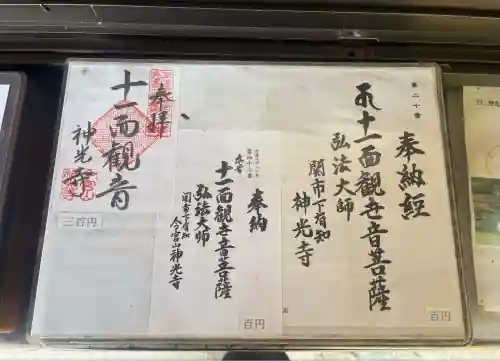 第二十番
奉納経
十一面観世音菩薩
弘法大師
関市下有知
神光寺
百円
奉納
十一面観世音菩薩
弘法大師
関市下有知
今宮山神光寺
百円
奉拝
十一面観音
神光寺
三百円